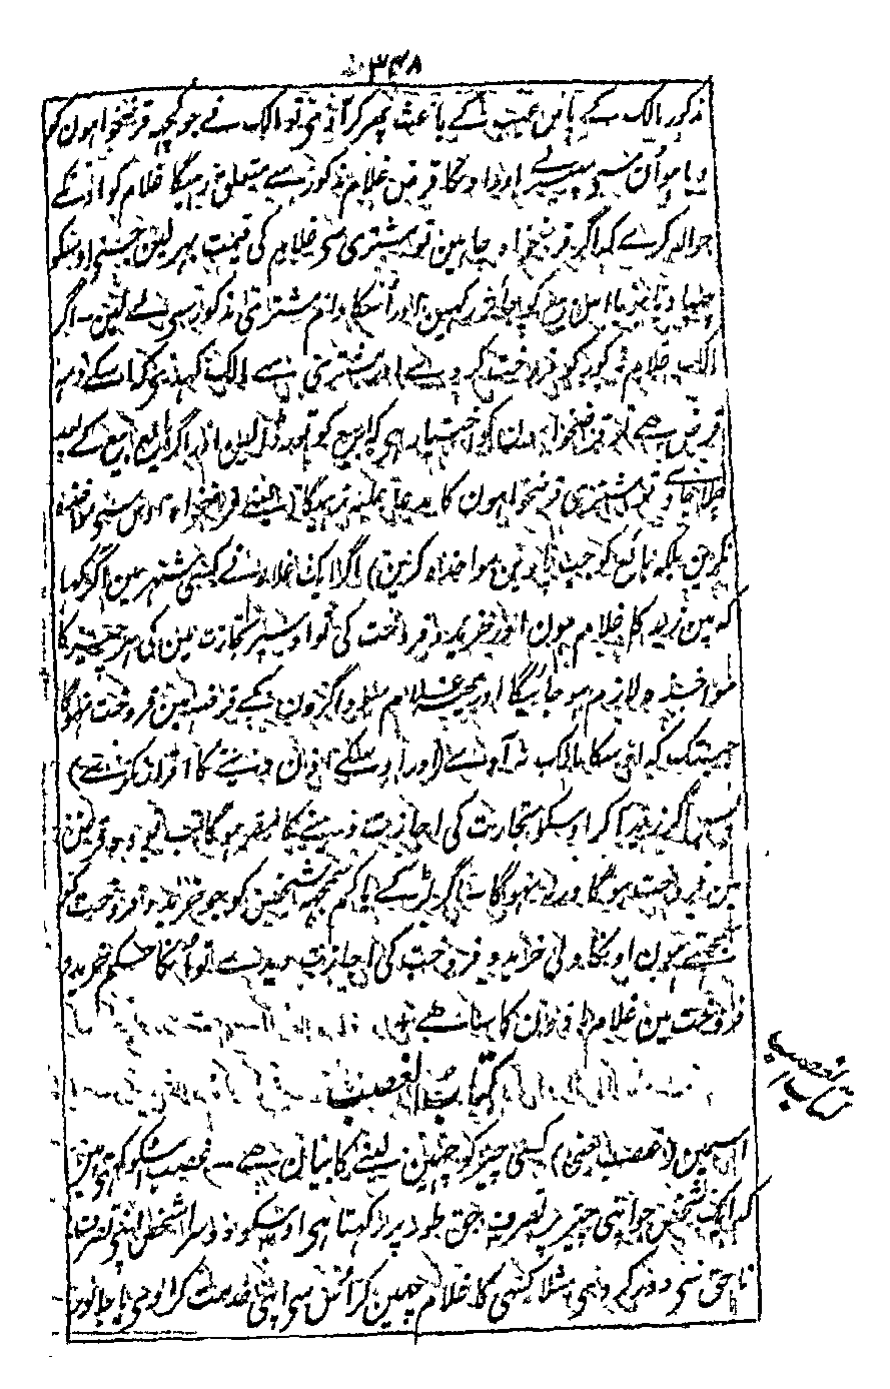 ۳۴۸
مذکور مالک کے پاس عیب کے باعث پھر کر آئی تو مالک نے جو کچھ قرضخواہون کو
دیا ہو اُن سے پھیر لے اور اونکا قرض غلام مذکور سے متعلق رہیگا غلام کو اونکے
حوالہ کرے کہ اگر قرضخواہ چاہین تو مشتری سی غلام کی قیمت بھر لین جسنے اوسکو
چھپا دیا ہو یا اس بیع کو جائز رکھین اور اُسکا دام مشتری مذکور سی لے لین۔ اگر
مالک غلام مذکور کو فروخت کر دے اور مشتری سے مالک کہدی کہ اسکے ذمہ
قرض ہے تو قرضخواہون کو اختیار ہی کہ بیع کو توڑ ڈالین اور اگر بائع بیع کے بعد
چلا جائے تو مشتری قرضخواہون کا مدعا علیہ نہوگا (یعنے قرضخواہ اوس سی مواخذہ
نکرین بلکہ بائع کو جب پاوین مواخذہ کرین) اگر ایک غلام نے کسی شہر مین آکر کہا
کہ مین زید کا غلام ہون اور خرید و فروخت کی تو اوسپر تجارت مین کی ہر چیز کا
مواخذہ لازم ہو جائیگا اور یہ غلام سوداگرون کے قرضہ مین فروخت نہوگا
جبتک کہ اوسکا مالک نہ آوے (اور اوسکے اذن دینے کا اقرار نکرے)
پس اگر زید آکر اوسکو تجارت کی اجازت دینے کا مقر ہوگا تب تو وہ قرض
مین فروخت ہوگا ورنہ نہوگا۔ اگر لڑکے یا کم سمجھ شخص کو جو خرید و فروخت کو
سمجھتے ہون اونکا ولی خرید و فروخت کی اجازت دیدے تو اُنکا حکم خرید و
فروخت مین غلام ماذون کا سا ہے
کتاب الغصب
کتاب الغصب
اسمین (غصب یعنی) کسی چیز کو چھین لینے کا بیان ہے۔ غصب اسکو کہتی ہین
کہ ایک شخص جو اپنی چیز پر تصرف بحق طور پر رکھتا ہی اوسکو دوسرا شخص اپنی تصرف
ناحق سی دور کر دی مثلا کسی کا غلام چھین کر اُس سی اپنی خدمت کراوی یا جانور